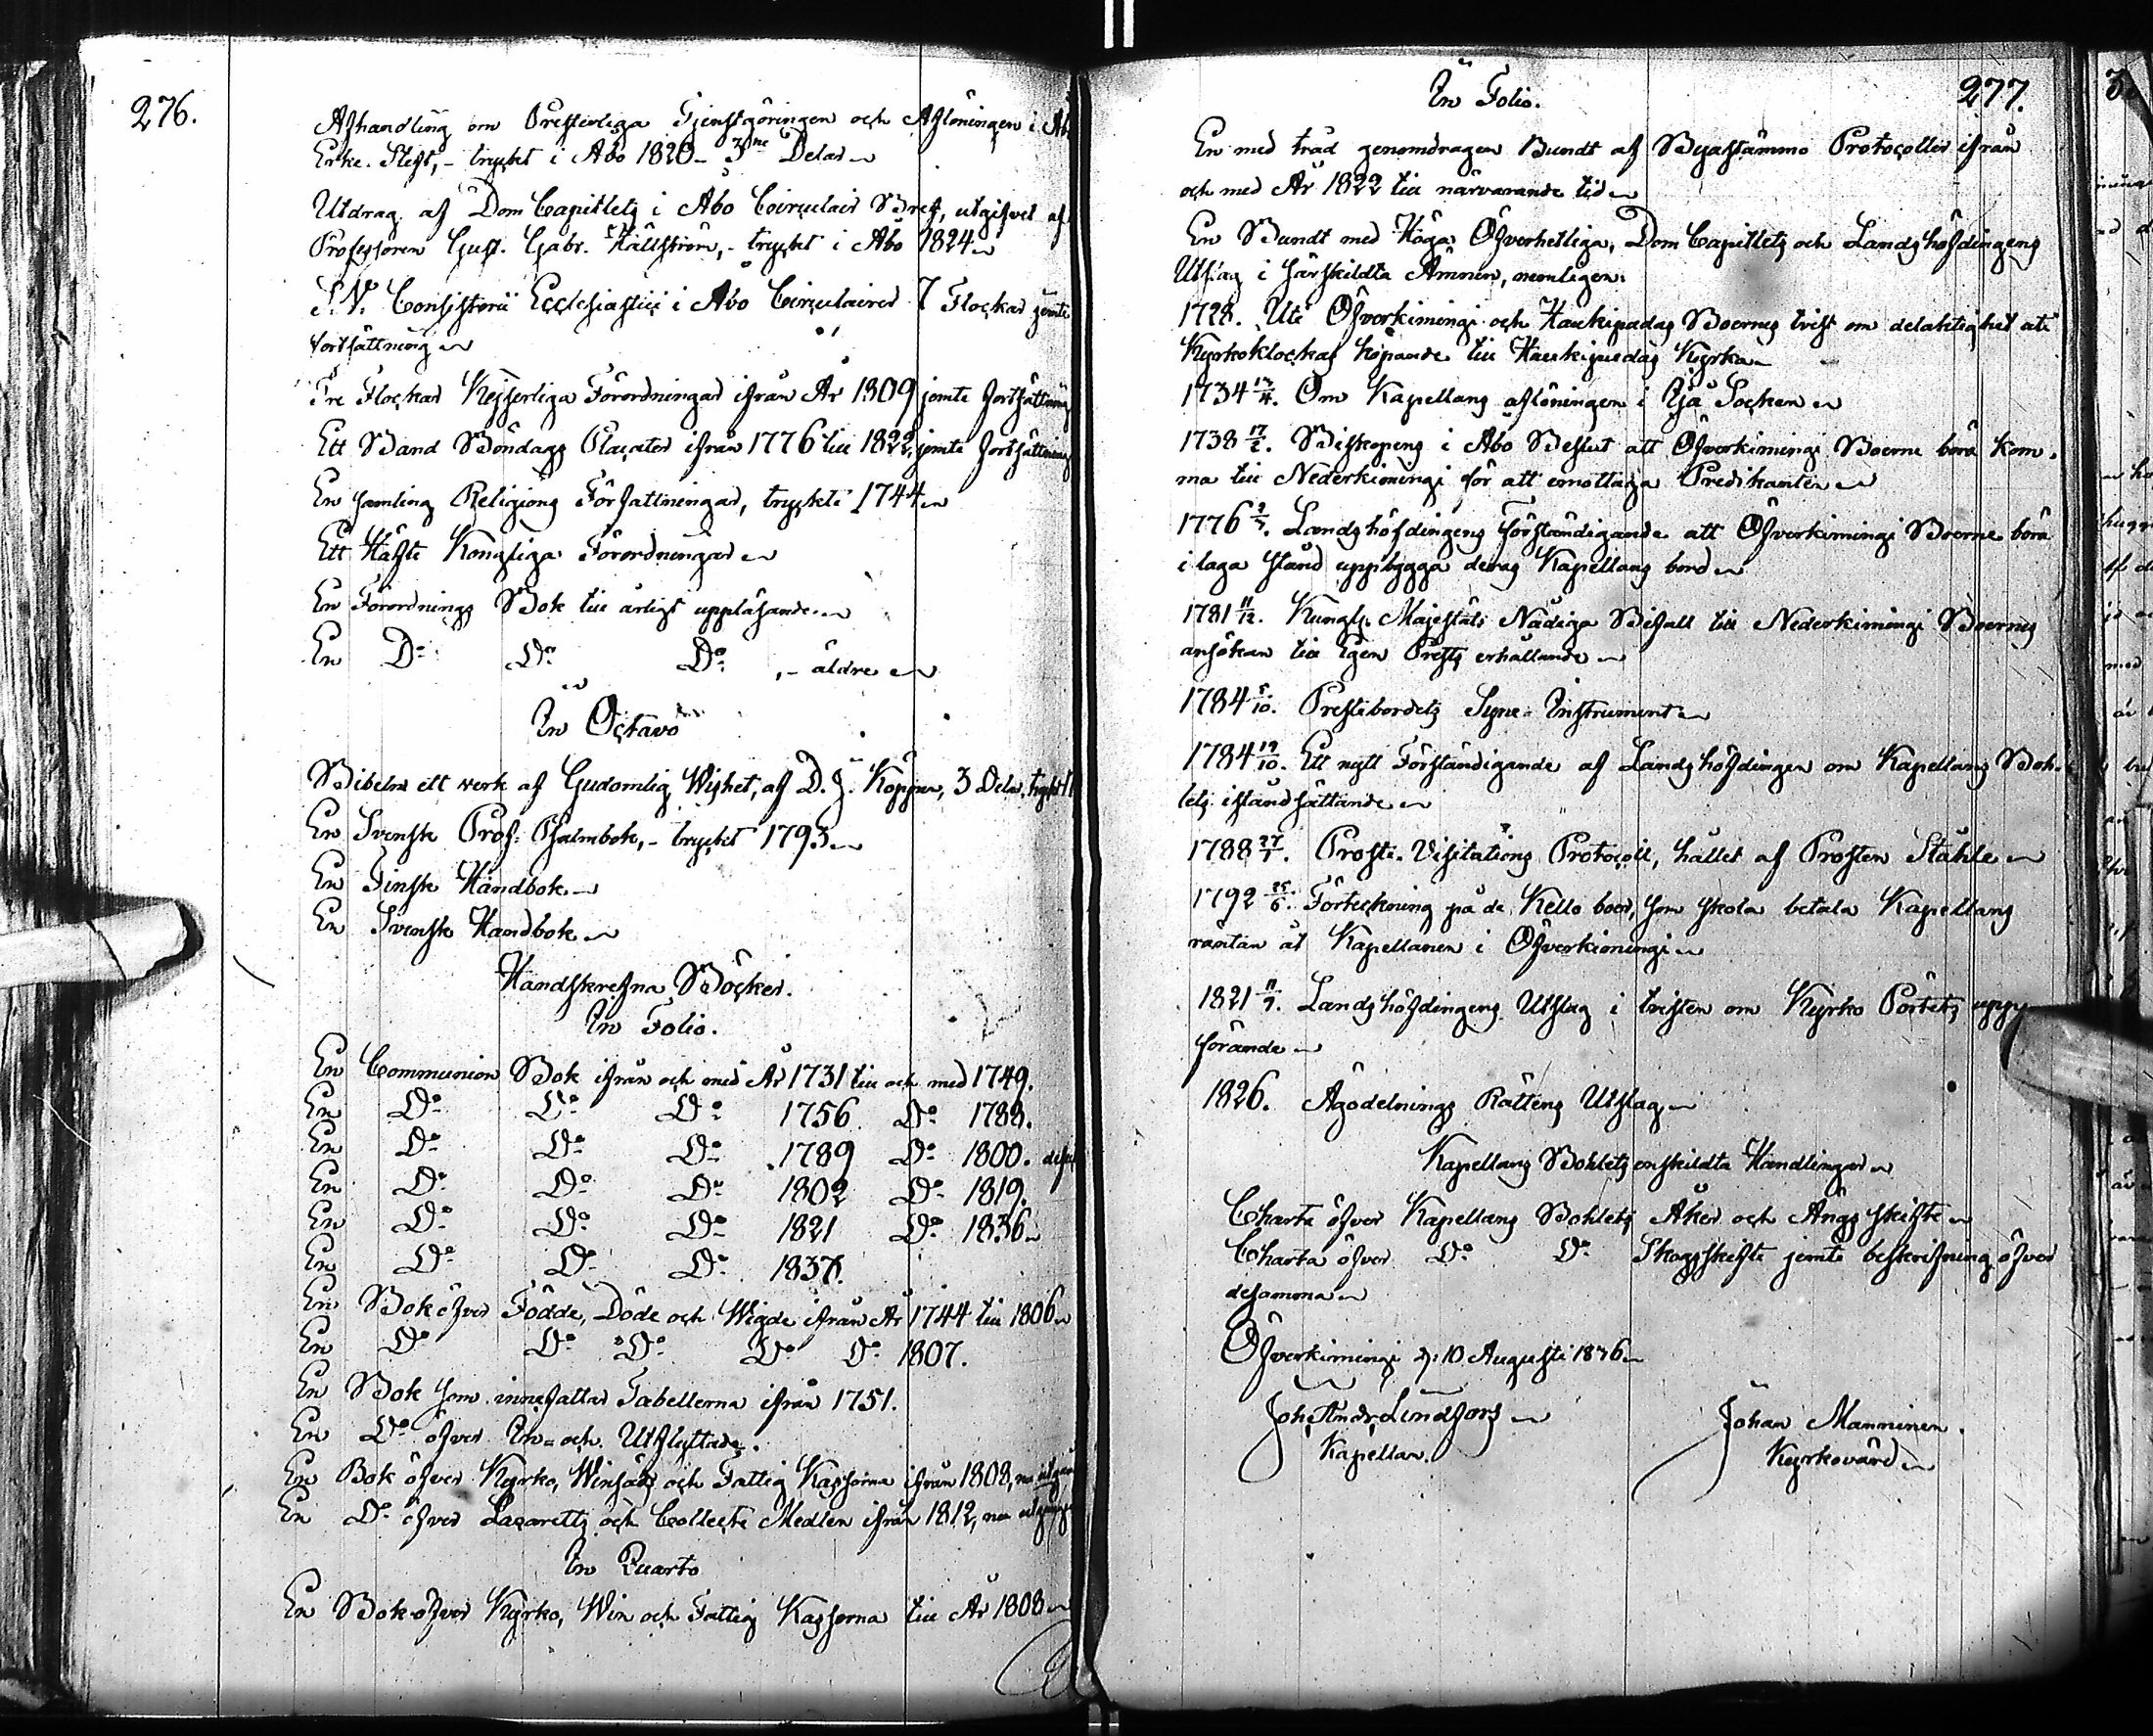 276.
Afhandling om Presterliga Tjenstgöringen och Aflöningen i Åbo
Erke-Stift,- tryckt i Åbo 1820- 3ne Delar
Utdrag af Dom Capitlets i Åbo Circulair Bref, utgifvet af
Professoren Gust. Gabr. Hällström,- tryckt i Åbo 1824
Consistorii Ecclesiastici i Åbo Circulairer 7 Flockar jemte
fortsättning
Tre Flockar Kejserliga Förordningar ifrån År 1809 jemte fortsättning
Ett Band Böndags Placater ifrån 1776 till 1822, jemte fortsättning
En samling Religions Författningar, tryckte 1744
Ett Häfte Kongliga Förordningar
En Förordnings Bok till årligt uppläsande.
En Do Do Do ,- äldre
In Octavo
Bibeln ett werk af Gudomlig Wishet, af D. J. Köppen, 3 Delar,
En Svensk Prof. Psalmbok,- tryckt 1793
En Finsk Handbok
En Svensk Handbok
Handskrefna Böcker.
In Folio.
En Communion Bok ifrån och med År 1731 till och med 1749.
En Do Do Do 1756 Do 1788.
En Do Do Do 1789 Do 1800.
En Do Do Do 1802 Do 1819.
En Do Do Do 1821 Do 1836
En Do Do Do 1837.
En Bok öfver Födde, Döde och Wigde ifrån År 1744 till 1806
En Do Do Do Do Do 1807.
En Bok som innefattar Tabellerna ifrån 1751.
En Do öfver In- och Utflyttade.
En Bok öfver Kyrko, Winsäds och Fattig Kassorna ifrån 1808,
En Do öfver Lazaretts och Collecte Medlen ifrån 1812,
In Quarto
En Bok öfver Kyrko, Win och Fattig Kassorna till År 1808
277.
In Folio.
En med tråd genomdragen Bundt af Byastämmo Protocoller ifrån
och med År 1822 till närvarande tid
En Bundt med Höga Öfverhetliga, Dom Capitlets och Landshöfdingens
Utslag i särskildta Ämnen, nemligen:
1728. Uti Öfverkimingi och Haukipudas Boernes tvist om delaktighet uti
Kyrkoklockas köpande till Haukipudas Kyrka
1734 13/4. Om Kapellans aflöningen i Ijå Socken
1738 17/2. Biskopens i Åbo Beslut att Öfverkimingi Boerne böra kom-
ma till Nederkimingi för att emottaga Predikanten
1776 Landshöfdingens förständigande att Öfverkimingi Boerne böra
i laga stånd uppbygga deras Kapellans bord
1781 11/12. Kungl. Majestäts Nådiga Bifall till Nederkimingi Boernes
ansökan till Egen Prests erhållande
1784 5/10. Prestebordets Syne-Instrument
1784 19/10. Ett nytt Förständigande af Landshöfdingen om Kapellans Boh-
lets iståndsättande
1788 27/7. Prosti-Visitations Protocoll, hållet af Prosten Ståhle
1792 25/6. Förteckning på de Kello boer, som skola betala Kapellans
räntan åt Kapellanen i Öfverkimingi
1821 11/7. Landshöfdingens Utslag i tvisten om Kyrko Pörtets upp-
förande
1826. Ägodelnings Rättens Utslag
Kapellans Bohlets enskildta Handlingar
Charta öfver Kapellans Bohlets Åker och Ängs skifte
Charta öfver Do Do Skogsskifte jemte beskrifning öfver
desamma
Öfverkimingi d: 10 Augusti 1836
Joh: Andr: Lindfors
Kapellan.
Johan Manninen.
Kyrkovärd